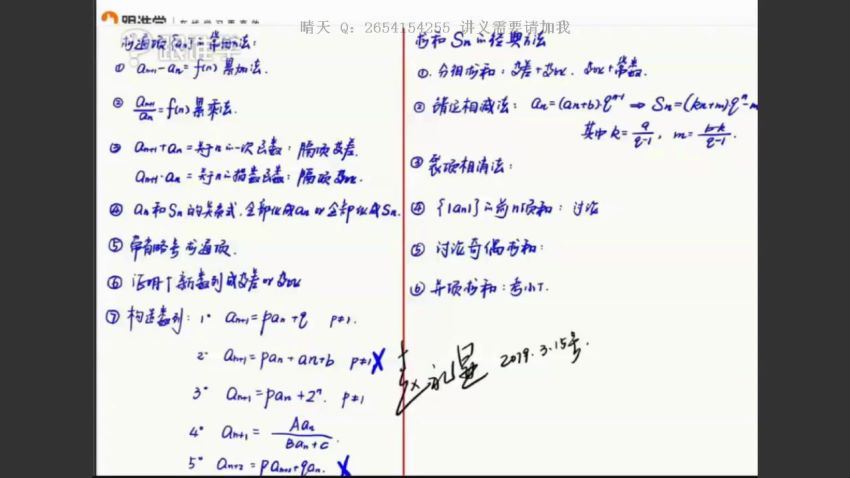 跟谁学
晴天 Q：2654154255 讲义需要请加我
跟谁学
求通项{an}的常用方法：
① an+1-an=f(n) 累加法.
② an+1/an=f(n) 累乘法.
③ an+1+an=关于n的一次函数：隔项等差.
an+1·an=关于n的指数函数：隔项等比.
④ an和Sn的关系式，全部化成an or 全部化成Sn.
⑤ 带省略号求通项.
⑥ 证明个新数列成等差or等比
⑦ 构造数列：1° an+1=pan+q p≠1.
2° an+1=pan+an+b p≠1 X
3° an+1=pan+2ⁿ. p≠1
4° an+1=Aan/Ban+C.
5° an+2=pan+1+qan. X
求和Sn的经典方法
①. 分组求和：等差+等比. 等比+常数.
② 错位相减法：an=(an+b)qⁿ⁻¹ ⇒ Sn=(kn+m)qⁿ-m
其中k=a/q-1, m=b-k/q-1.
③ 裂项相消法：
④ {|an|}的前n项和：讨论
⑤ 讨论奇偶求和：
⑥ 并项求和：考小T.
2019.3.15号.